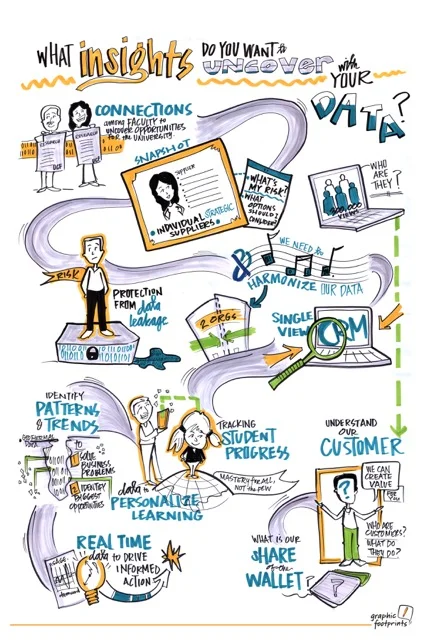 WHAT insights DO YOU WANT to
UNCOVER with
YOUR
DATA?
CONNECTIONS
among FACULTY to
UNCOVER OPPORTUNITIES
FOR the UNIVERSITY
SNAPSHOT
INDIVIDUAL STRATEGIC
SUPPLIERS
WHAT'S
MY RISK?
WHAT
OPTIONS
SHOULD I
CONSIDER?
WHO ARE
THEY?
VIEWS
WE NEED to
& HARMONIZE OUR DATA
RISK
PROTECTION
FROM data
leakage
2 ORGS
SINGLE
VIEW
CRM
IDENTIFY
PATTERNS
& TRENDS
TO
SOLVE
BUSINESS
PROBLEMS
IDENTIFY
BIGGEST
OPPORTUNITIES
TRACKING
STUDENT
PROGRESS
MASTERY for ALL,
NOT the FEW
data to
PERSONALIZE
LEARNING
UNDERSTAND
OUR
CUSTOMER
?
WE CAN
CREATE
VALUE
FOR YOU
WHO ARE
CUSTOMERS?
WHAT DO
THEY DO?
REAL TIME
data TO DRIVE
INFORMED
ACTION
WHAT IS OUR
SHARE
of the
WALLET?
?
graphic
footprints